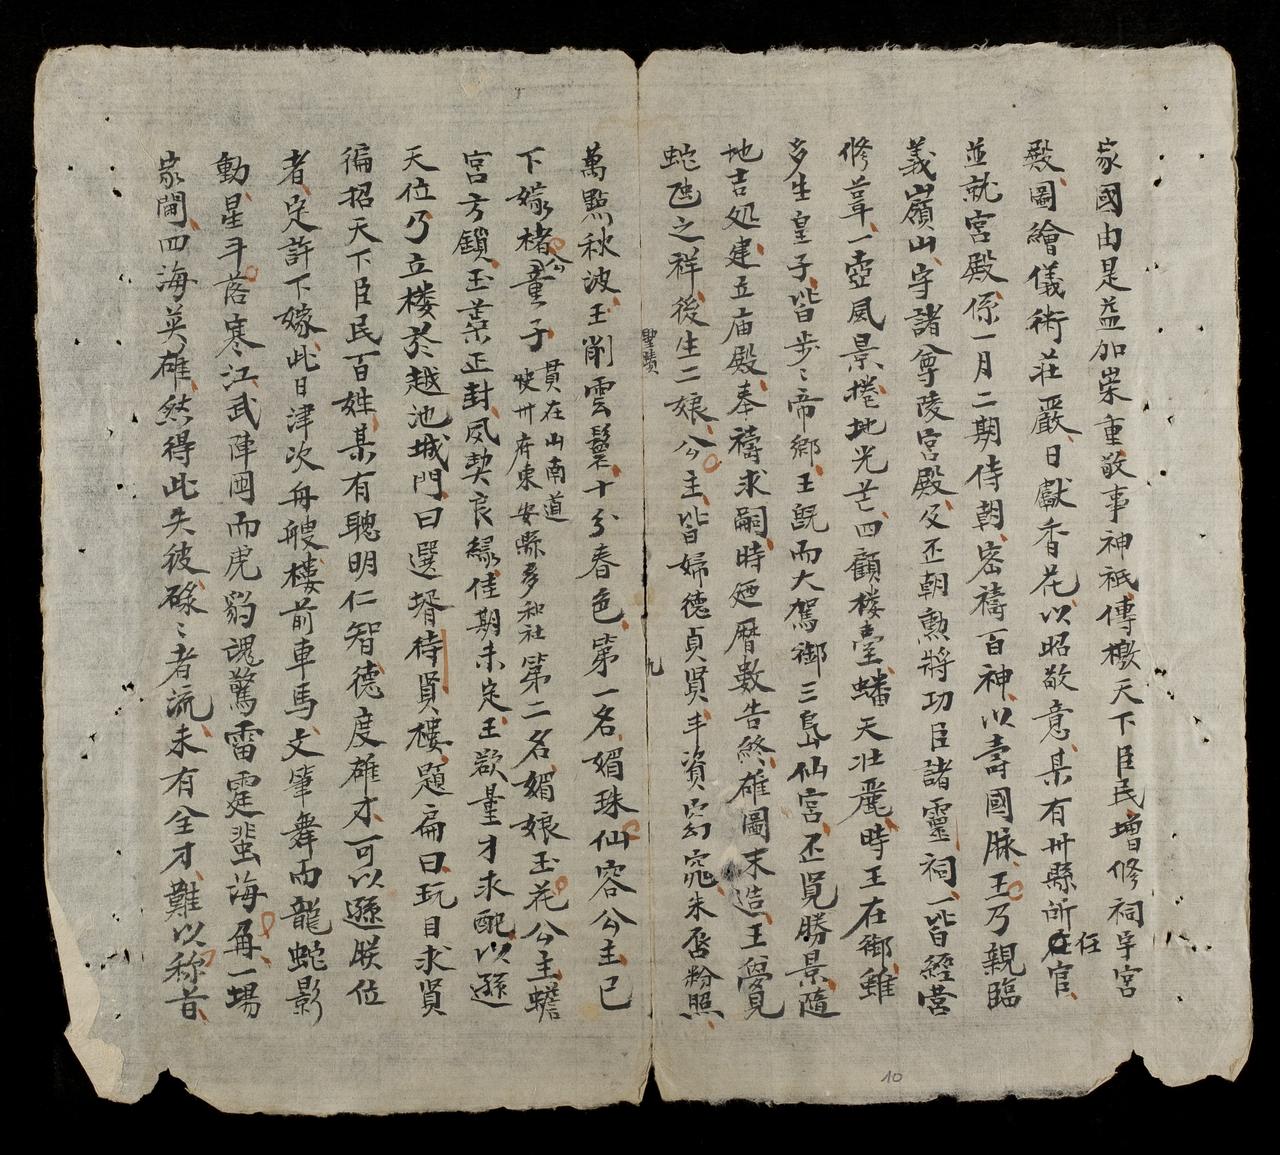 家國由是益加崇重敬事神祇傳檄天下臣民增修祠宇宮
殿圖繪儀術庄嚴日獻香花以昭敬意某有州縣所任官
並就宮殿係一月二期侍朝密禱百神以壽國脉王乃親臨
義嶺山宇諸尊陵宮殿及丕朝勲將功臣諸靈祠一皆經营
修葺一壺風景捲地光芒四顧楼臺蟠天壮麗時王在御雖
多生皇子皆步〻帝鄉王旣而大駕御三島仙宮丕覓勝景隨
地吉処建立庙殿奉禱求嗣時廼曆數告終雄圖末造王夢見
蛇虺之祥後生二娘公主皆婦德貞賢丰資窈窕朱唇粉照
聖蹟
九
萬點秋波玉削雲鬟十分春色第一名媚珠仙容公主已
下嫁褚公童子貫在山南道快州府東安縣多和社第二名媚娘玉花公主蟾
宮方鎖玉葉正封風契良緣佳期未定王欲量才求配以遜
天位乃立楼於越池城門曰選壻待賢樓題扁曰玩目求賢
徧招天下臣民百姓某有聰明仁智德度雄才可以遜朕位
者定許下嫁此日津次舟艘樓前車馬文筆舞而龍蛇影
動星斗落寒江武陣闘而虎豹魂驚雷霆蜚海再一場
家閙四海英雄然得此失彼碌〻者流未有全才難以称旨
10